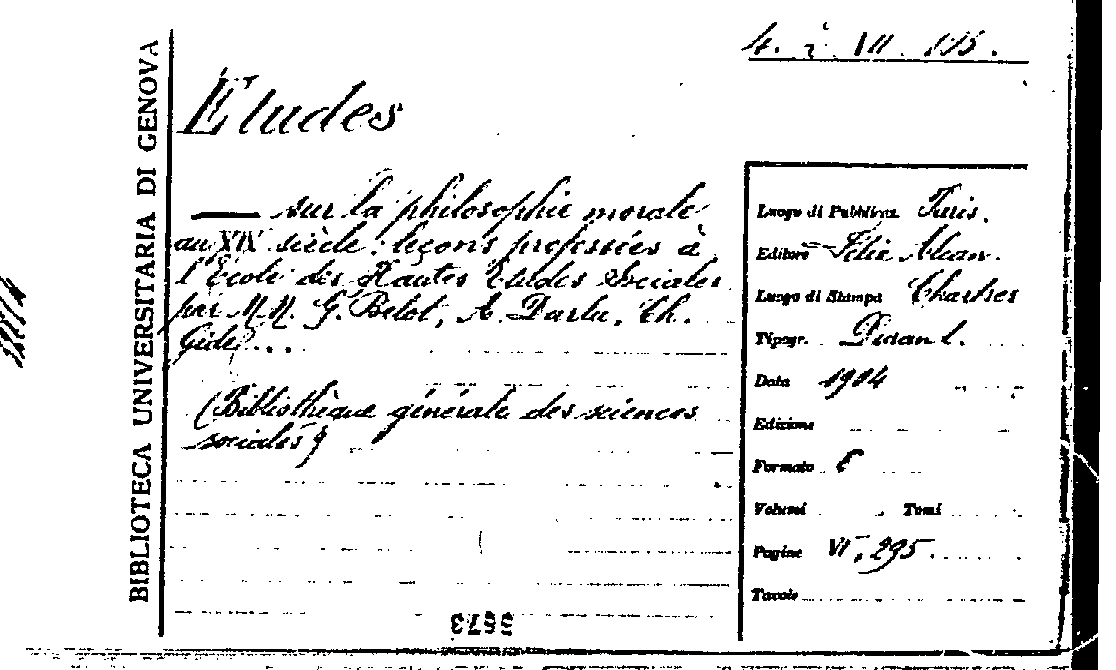 BIBLIOTECA UNIVERSITARIA DI GENOVA
Etudes
sur la philosophie morale
au XIX siècle: leçons professées à
l'Ecole des Hautes Etudes Sociales
par M.M. G. Belot, A. Darlu, Ch.
Gide...
(Bibliothèque générale des sciences
sociales)
Luogo di Pubblicaz. Paris.
Editore Félix Alcan.
Luogo di Stampa Chartres
Tipogr. Durand.
Data 1904
Edizione
Formato
Volumi Tomi
Pagine VI, 295.
Tavole